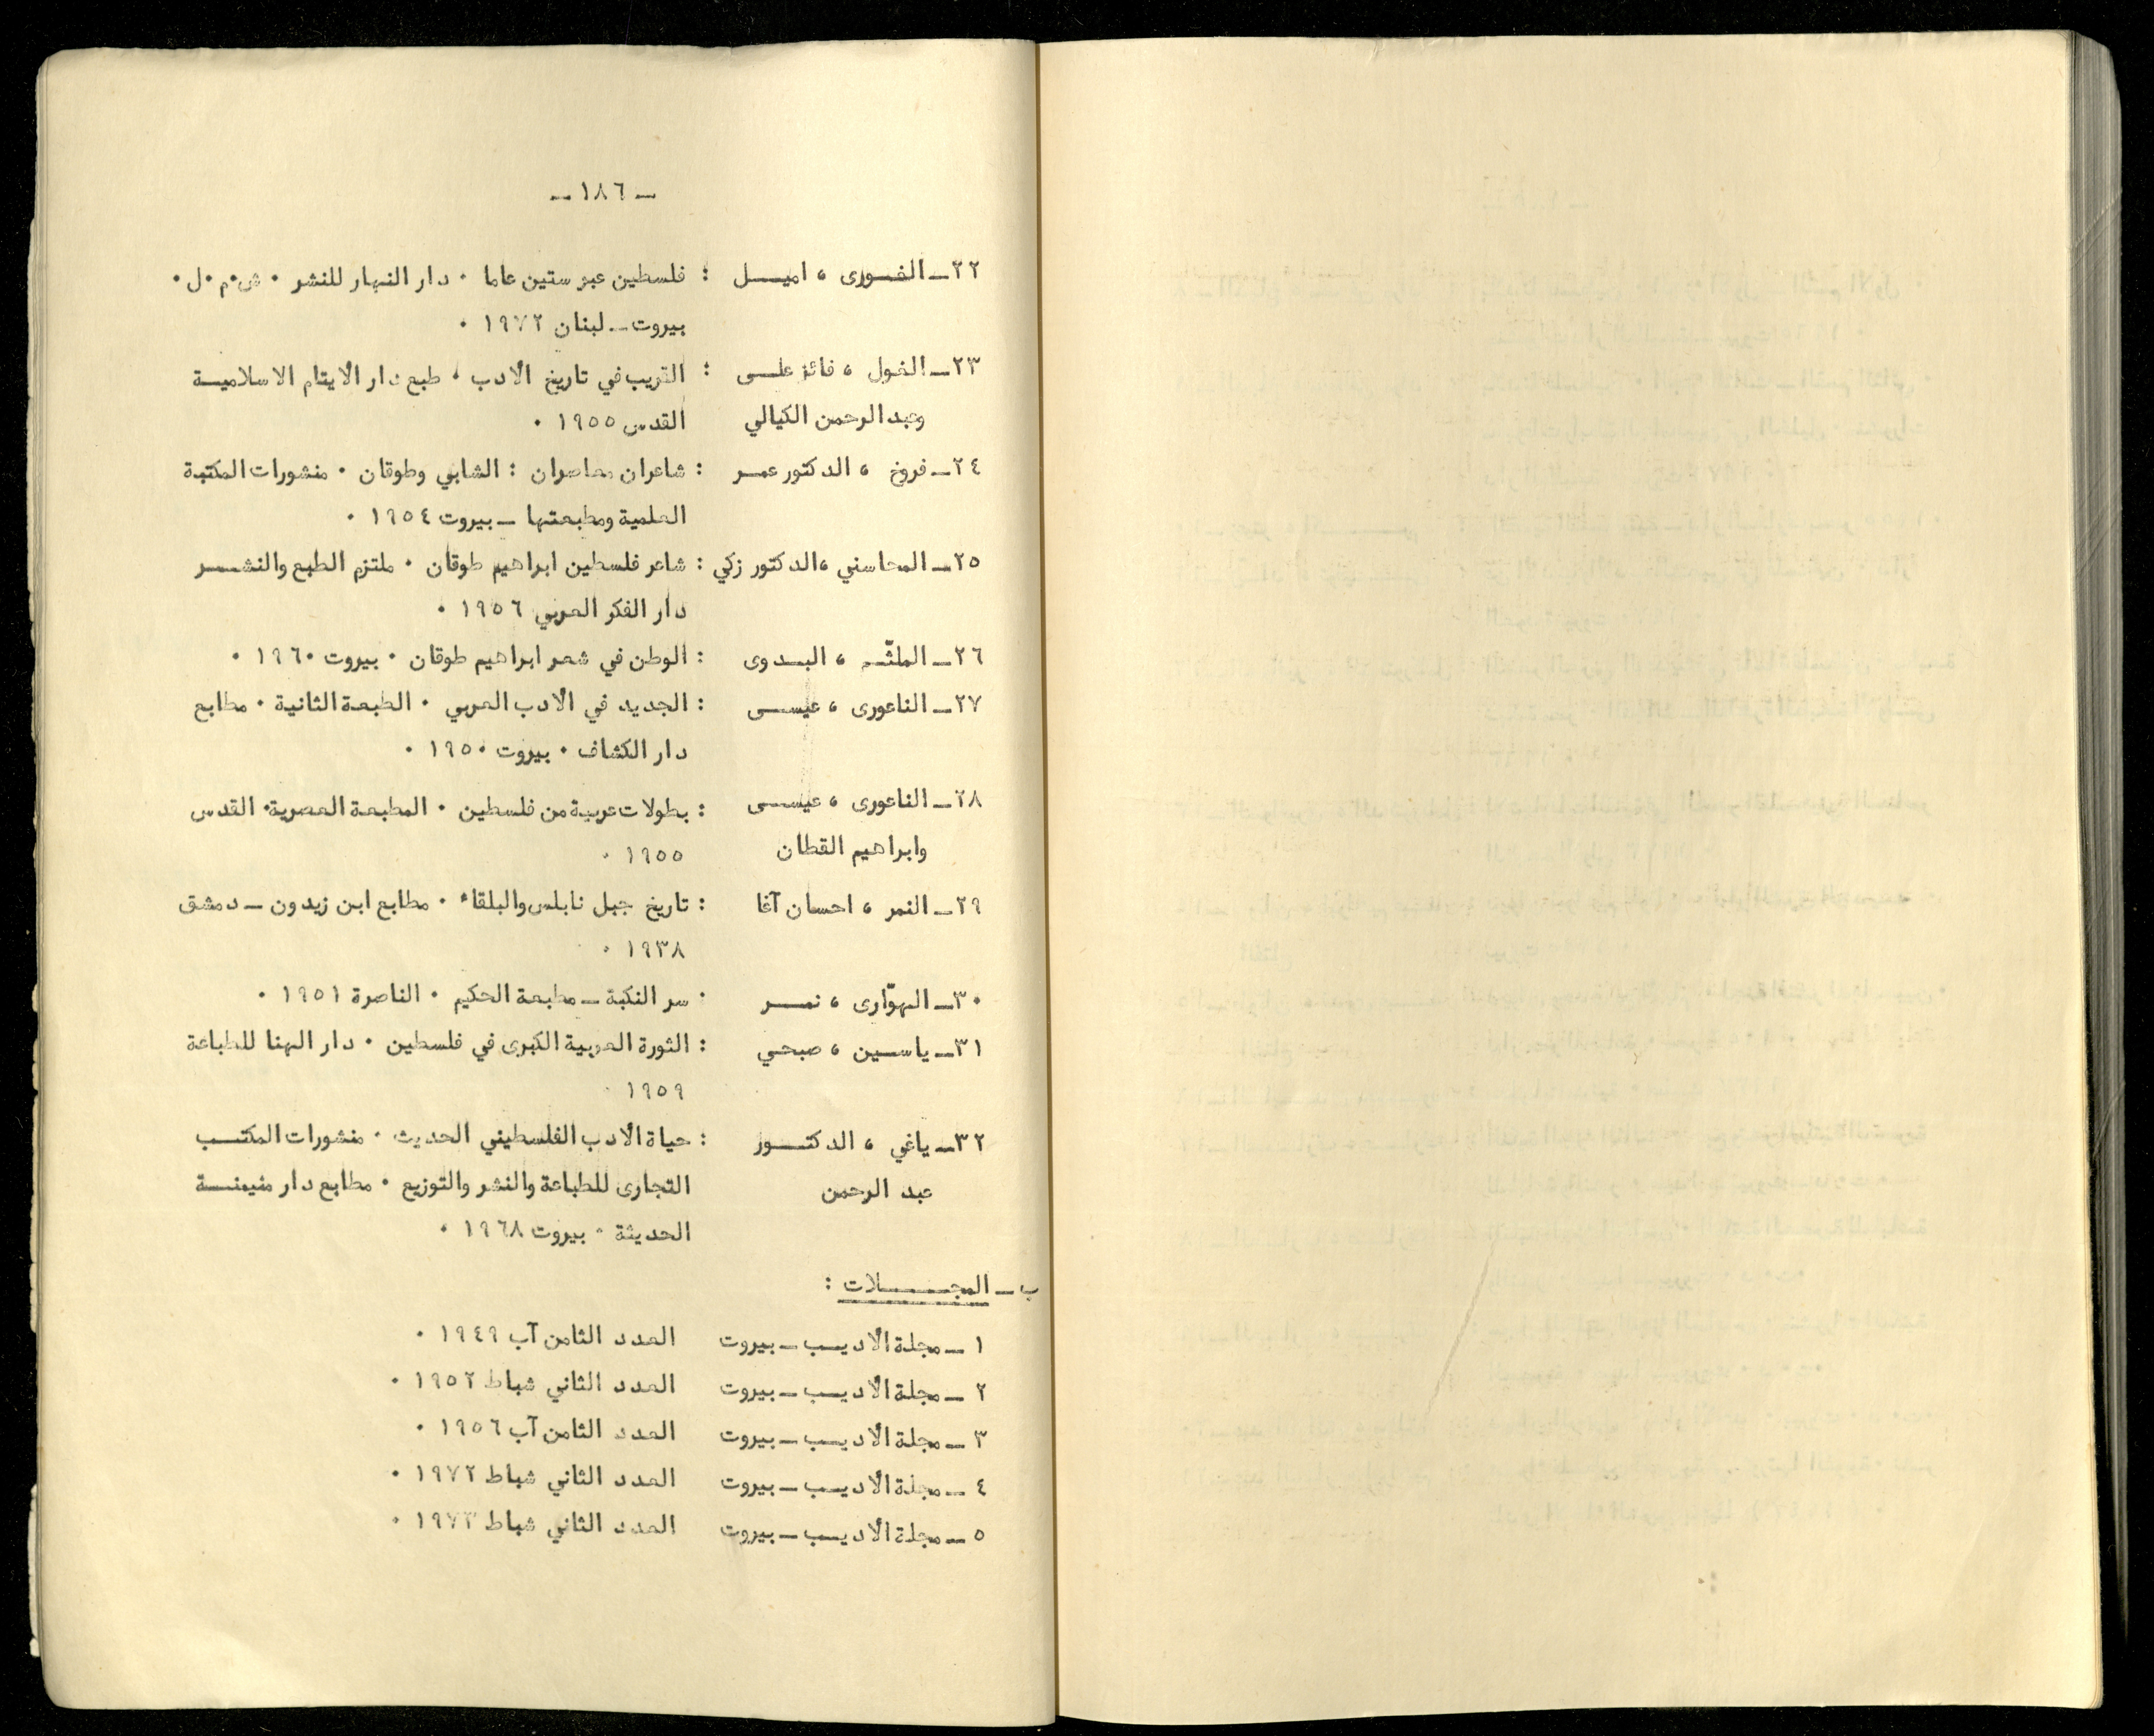 ـ ١٨٦ ـ
٢٢ـ الغـورى ، اميـــل : فلسطين عبر ستين عاما ٠ دار النهار للنشر ٠ ش٠م٠ل٠
بيروت ـ لبنان ١٩٧٢ ٠
٢٣ـ الغول ، فائز علـى : القريب في تاريخ الأدب ٠ طبع دار الأيتام الاسلاميـة
وعبد الرحمن الكيالي القدس ١٩٥٥ ٠
٢٤ـ فروخ ، الدكتور عمـر : شاعران معاصران : الشابي وطوقان ٠ منشورات المكتبة
العلمية ومطبعتها ـ بيروت ١٩٥٤ ٠
٢٥ـ المحاسني ،الدكتور زكي : شاعر فلسطين ابراهيم طوقان ٠ ملتزم الطبع والنشـر
دار الفكر العربي ١٩٥٦ ٠
٢٦ـ الملثّـم ، البـدوى : الوطن في شعر ابراهيم طوقان ٠ بيروت ١٩٦٠ ٠
٢٧ـ الناعورى ، عيسـى : الجديد في الأدب العربي ٠ الطبعة الثانية ٠ مطابع
دار الكشاف ٠ بيروت ١٩٥٠ ٠
٢٨ـ الناعورى ، عيسـى : بطولات عربية من فلسطين ٠ المطبعة العصرية٠ القدس
وابراهيم القطان ١٩٥٥ ٠
٢٩ـ النمر ، احسان آغا : تاريخ جبل نابلس والبلقاء ٠ مطابع ابن زيدون ـ دمشق
١٩٣٨ ٠
٣٠ـ الهوّارى ، نمـــر ٠ سر النكبة ـ مطبعة الحكيم ٠ الناصرة ١٩٥١ ٠
٣١ـ ياسـين ، صبحـي : الثورة العربية الكبرى في فلسطين ٠ دار الهنا للطباعة
١٩٥٩ ٠
٣٢ـ ياغي ، الدكتـــور : حياة الأدب الفلسطيني الحديث ٠ منشورات المكتـب
عبد الرحمن التجارى للطباعة والنشر والتوزيع ٠ مطابع دار منيمنـة
الحديثة ٠ بيروت ١٩٦٨ ٠
ب ـ المجـــــلات :
١ ـ مجلة الأديـب ـ بيروت العدد الثامن آب ١٩٤٩ ٠
٢ ـ مجلة الأديـب ـ بيروت العدد الثاني شباط ١٩٥٢ ٠
٣ ـ مجلة الأديـب ـ بيروت العدد الثامن آب ١٩٥٦ ٠
٤ ـ مجلة الأديـب ـ بيروت العدد الثاني شباط ١٩٧٢ ٠
٥ ـ مجلة الأديـب ـ بيروت العدد الثاني شباط ١٩٧٣ ٠